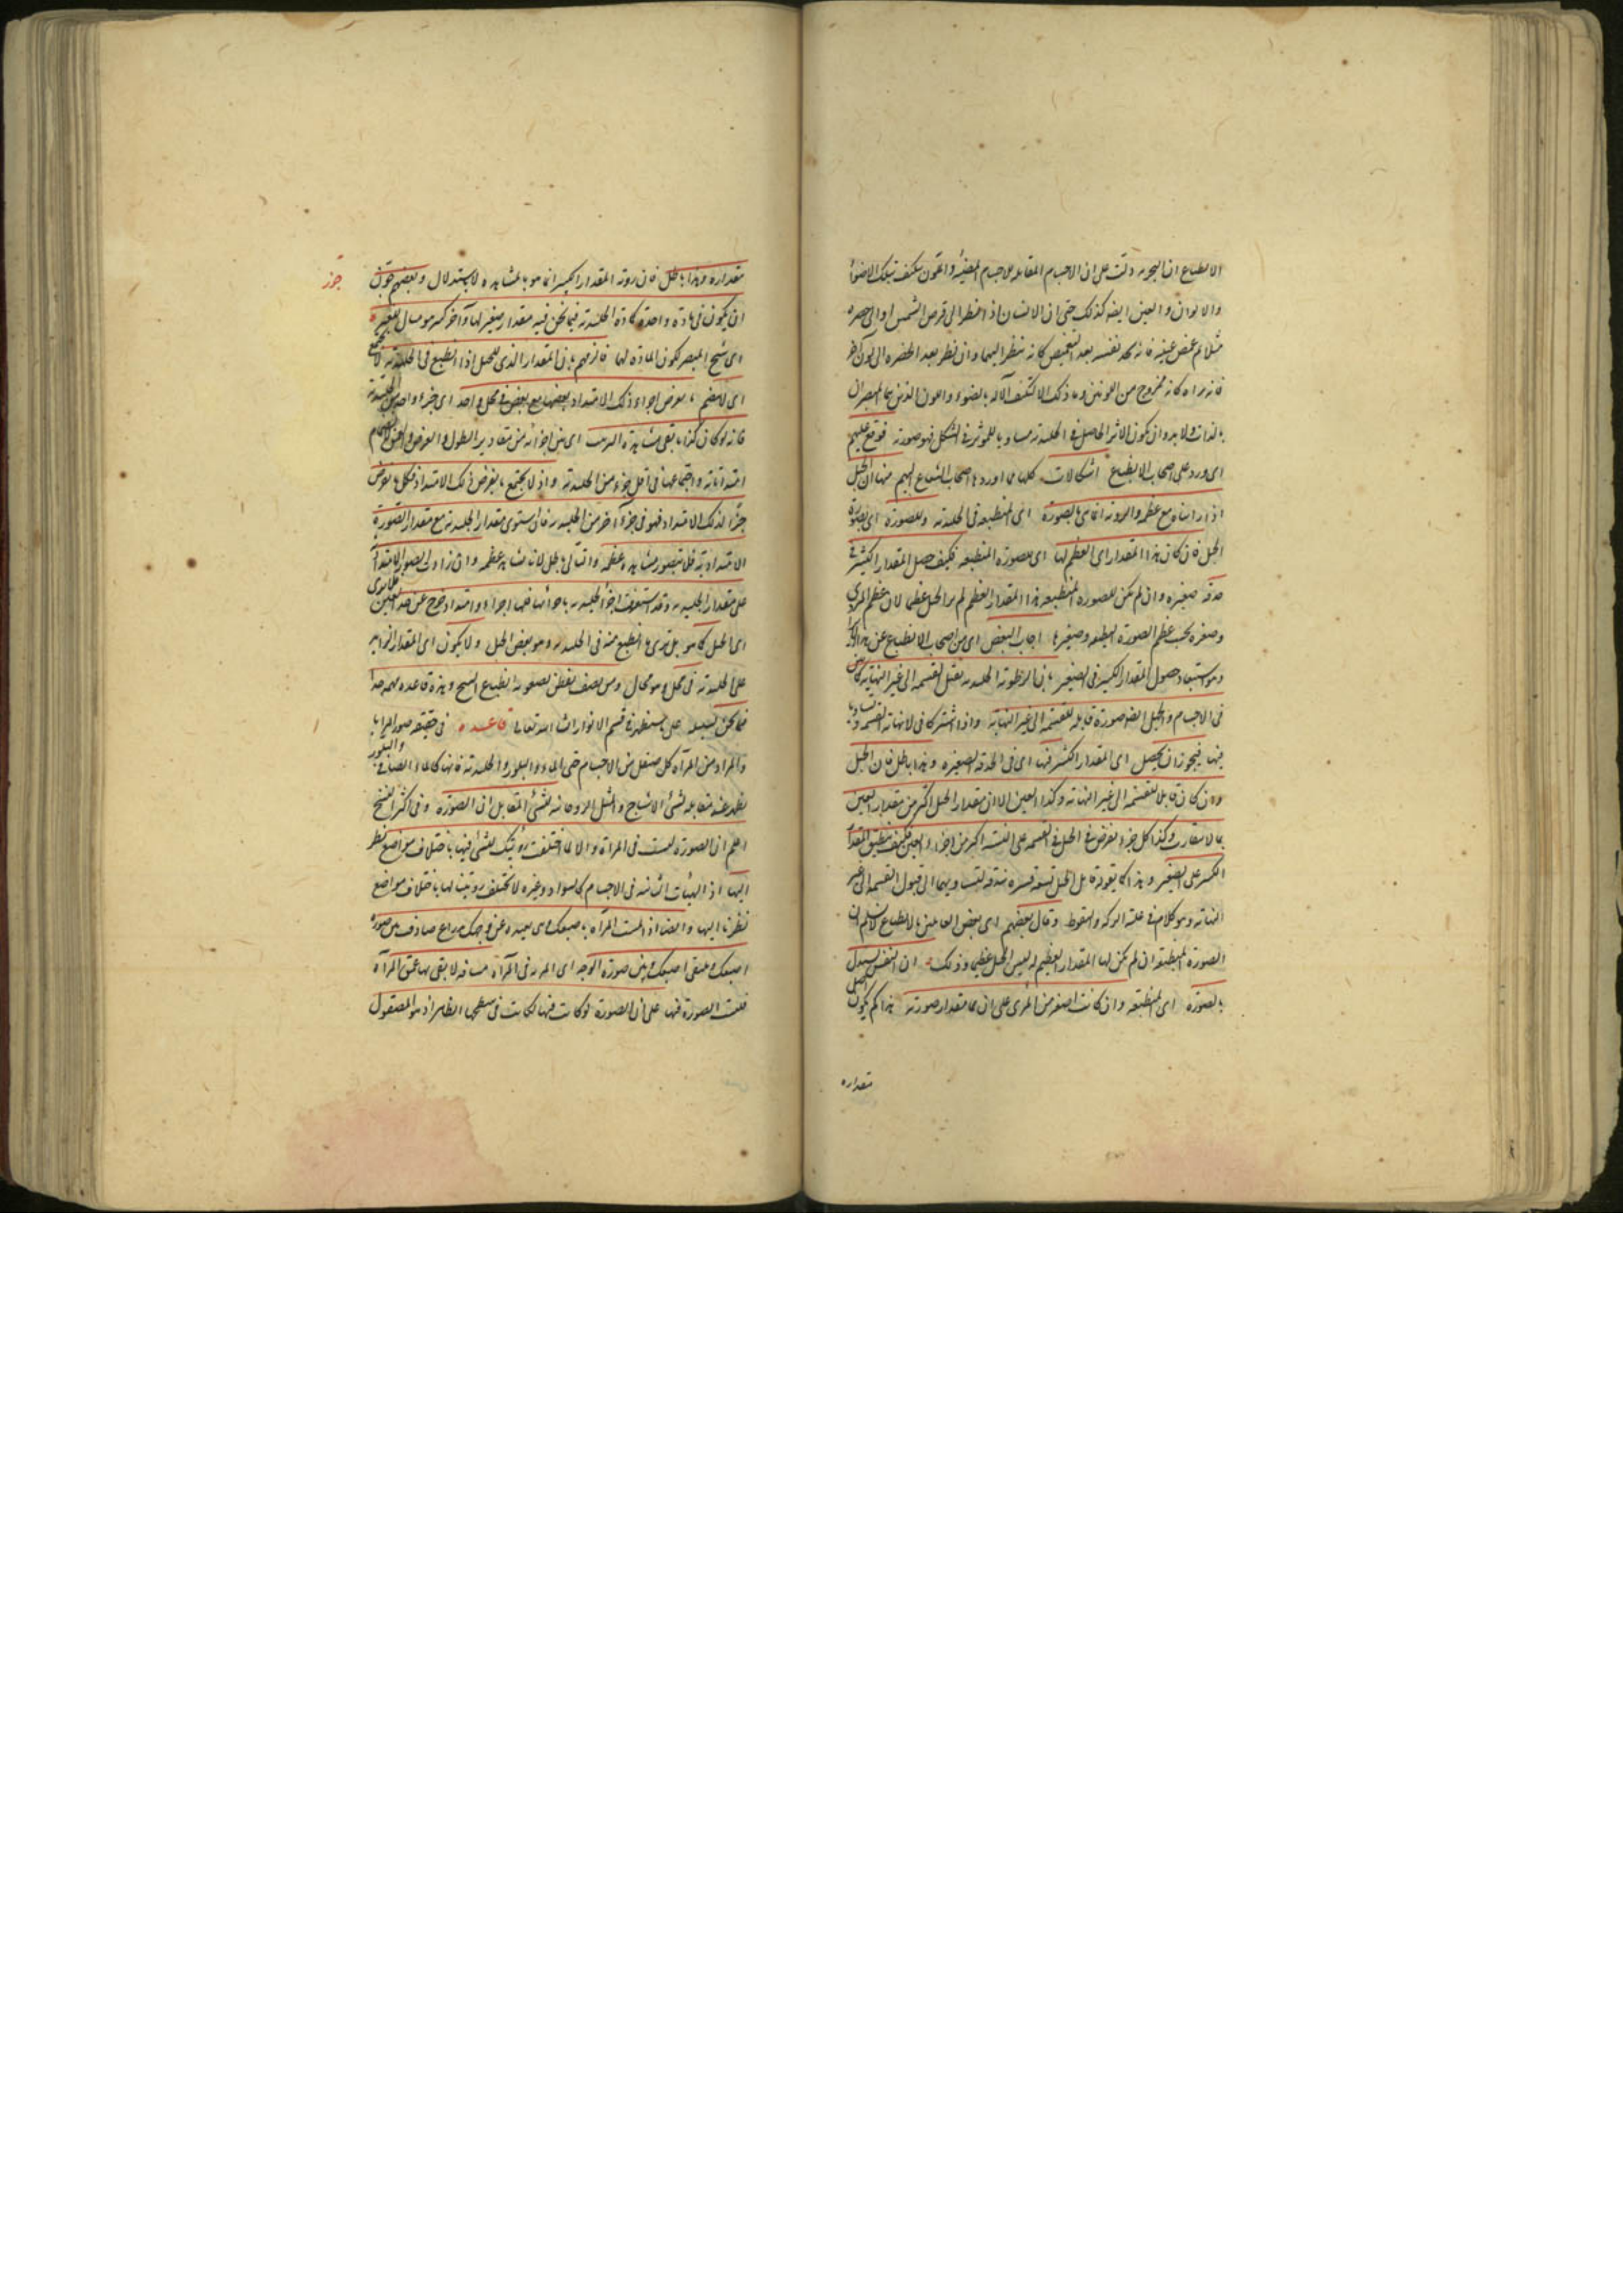 الانطباع ان التجربه دلت على ان الاجسام المقابله للاجسام المضيئه و المتلون تتكيف بتلك الاضواء
والالوان والعين ايضا كذلك حتى ان الانسان اذا نظر الى قرص الشمس او الى خضره
مثلا ثم غمض عينيه فانه يجد نفسه بعد التغميض كانه ينظر اليهما وان نظر بعد الخضره الى لون آخر
فانه يراه كانه ممزوج من اللونين وما ذلك الا لتكيف الآله بالضوء واللون الذين هما المبصران
بالذات ولابد وان يكون الاثر الحاصل فى الجليديه مساويا للمؤثر فى الشكل فهو صورته فوقع عليهم
اى ورد على اصحاب الانطباع اشكالات كلها مما اوردها اصحاب الشعاع عليهم منها ان الجبل
اذا رايناه مع عظمه والرويه انما هى بالصوره اى المنطبعه فى الجليديه وللصوره اى لصورة
الجبل فان كان هذا المقدار اى العظم لها اى للصوره المنطبعه فكيف حصل المقدار الكبير فى
حدقه صغيره وان لم يكن للصوره المنطبعه هذا المقدار العظيم لم ير الجبل عظيما لان عظم المرئى
وصغره بحسب عظم الصورة المنطبعه وصغرها اجاب البعض اى من اصحاب الانطباع عن هذا
وهو استبعاد حصول المقدار الكبير فى الصغير بان الرطوبه الجليديه تقبل القسمه الى غير النهايه كما بين
فى الاجسام والجبل ايضا صورة قابله للقسمه الى غير النهايه واذا اشتركا فى لانهايه القسمه وتساويا
فيها فيجوز ان يحصل اى المقدار الكبير فيها اى فى الحدقه الصغيره وهذا باطل فان الجبل
وان كان قابلا للقسمه الى غير النهايه وكذا العين الا ان مقدار الجبل اكبر من مقدار العين
بما لا يتقارب وكذا كل جزء يفرض فى الجبل فى القسمه على النسبه اكبر من اجزاء العين فكيف ينطبق المقدار
الكبير على الصغير وهذا كما يقوله قابل الجبل تسعه قشره بندقه لتساويهما الى قبول القسمه الى غير
النهايه وهو كلام فى غايه الركه والسقوط وقال بعضهم اى بعض القائلين بالانطباع لا نسلم ان
الصورة المنطبعه ان لم يكن لها المقدار العظيم لم يبصر الجبل عظيما وذلك ان النفس تستدل
بالصورة اى المنطبعه وان كانت اصغر من المرئى على ان ما مقدار صورته هذا كم يكون اصل
مقداره
مقداره وهذا باطل فان رويه المقدار الكبير انما هو بالمشاهده لا بالاستدلال وبعضهم جوز
جوز
ان يكون فى ماده واحده كماده الجليديه فيما نحن فيه مقدار صغير لها وآخر كبير هو مثال للغير
اى شبح المبصر لكون الماده لها فالزمهم بان المقدار الذى للجبل اذا انطبع فى الجليديه لا يجتمع
اى لا ينضم ما يفرض اجزاء ذلك الامتداد بعضها مع بعض فى محل واحد اى جزء واحد من الجليديه
فانه لو كان كذا ما بقى مشاهدة الترتيب اى بين اجزائه من مقادير الطول والعرض والعمق
امتداداته واجتماعها فى اقل جزء من الجليديه واذ لا يجتمع ما يفرض ذلك الامتداد فكل ما يفرض
جزءا لذلك الامتداد فهو فى جزء آخر من الجليديه فان استوى مقدار الجليديه مع مقدار الصورة
الامتداديه فلا يتصور مشاهده عظمه والتالى باطل لانا نشاهد عظمه وان زاد الصور الامتداديه
على مقدار الجليديه وقد استغرقت اجزأ الجليديه باجزائها فلها اجزاء وامتداد خرج عن حد العين
اى الجبل كما هو بل نرى ما انطبع منه فى الجليديه وهو بعض الجبل ولا يكون اى المقدار الزايد
على الجليديه فى محل وهو محال ومن انصف تفطن لصعوبه انطباع الشبح وهذه قاعده مهمه جدا
فيما نحن بسبيله على ما سنظهر فى قسم الانوار انشاء الله تعالى قاعده فى حقيقه صور المرايا
والمراد من المرآه كل صقيل من الاجسام حتى الماء والبلور والجليديه فانها كالماء الصافى والبلور
يظهر عند مقابله الشئ الاشباح والمثل الروحانيه للشئ المقابل ان الصوره وفى اكثر النسخ
اعلم ان الصوره ليست فى المرآة والا لما اختلفت رؤيتك للشئ فيها باختلاف مواضع نظر
اليها اذ الهيئات الثابته فى الاجسام كالسواد وغيره لا تختلف رويتنا لها باختلاف مواضع
نظرنا اليها وايضا اذا لمست المرآه باصبعك وهى بعيده عن وجهك بذراع صادفت بين صورة
اصبعك وملتقى اصبعك وبين صورة الوجه اى المريه فى المرآه مسافه لا يفى بها عمق المرآه
فليست الصورة فيها على ان الصورة لو كانت فيها لكانت فى سطحها الظاهر اذ هو المصقول